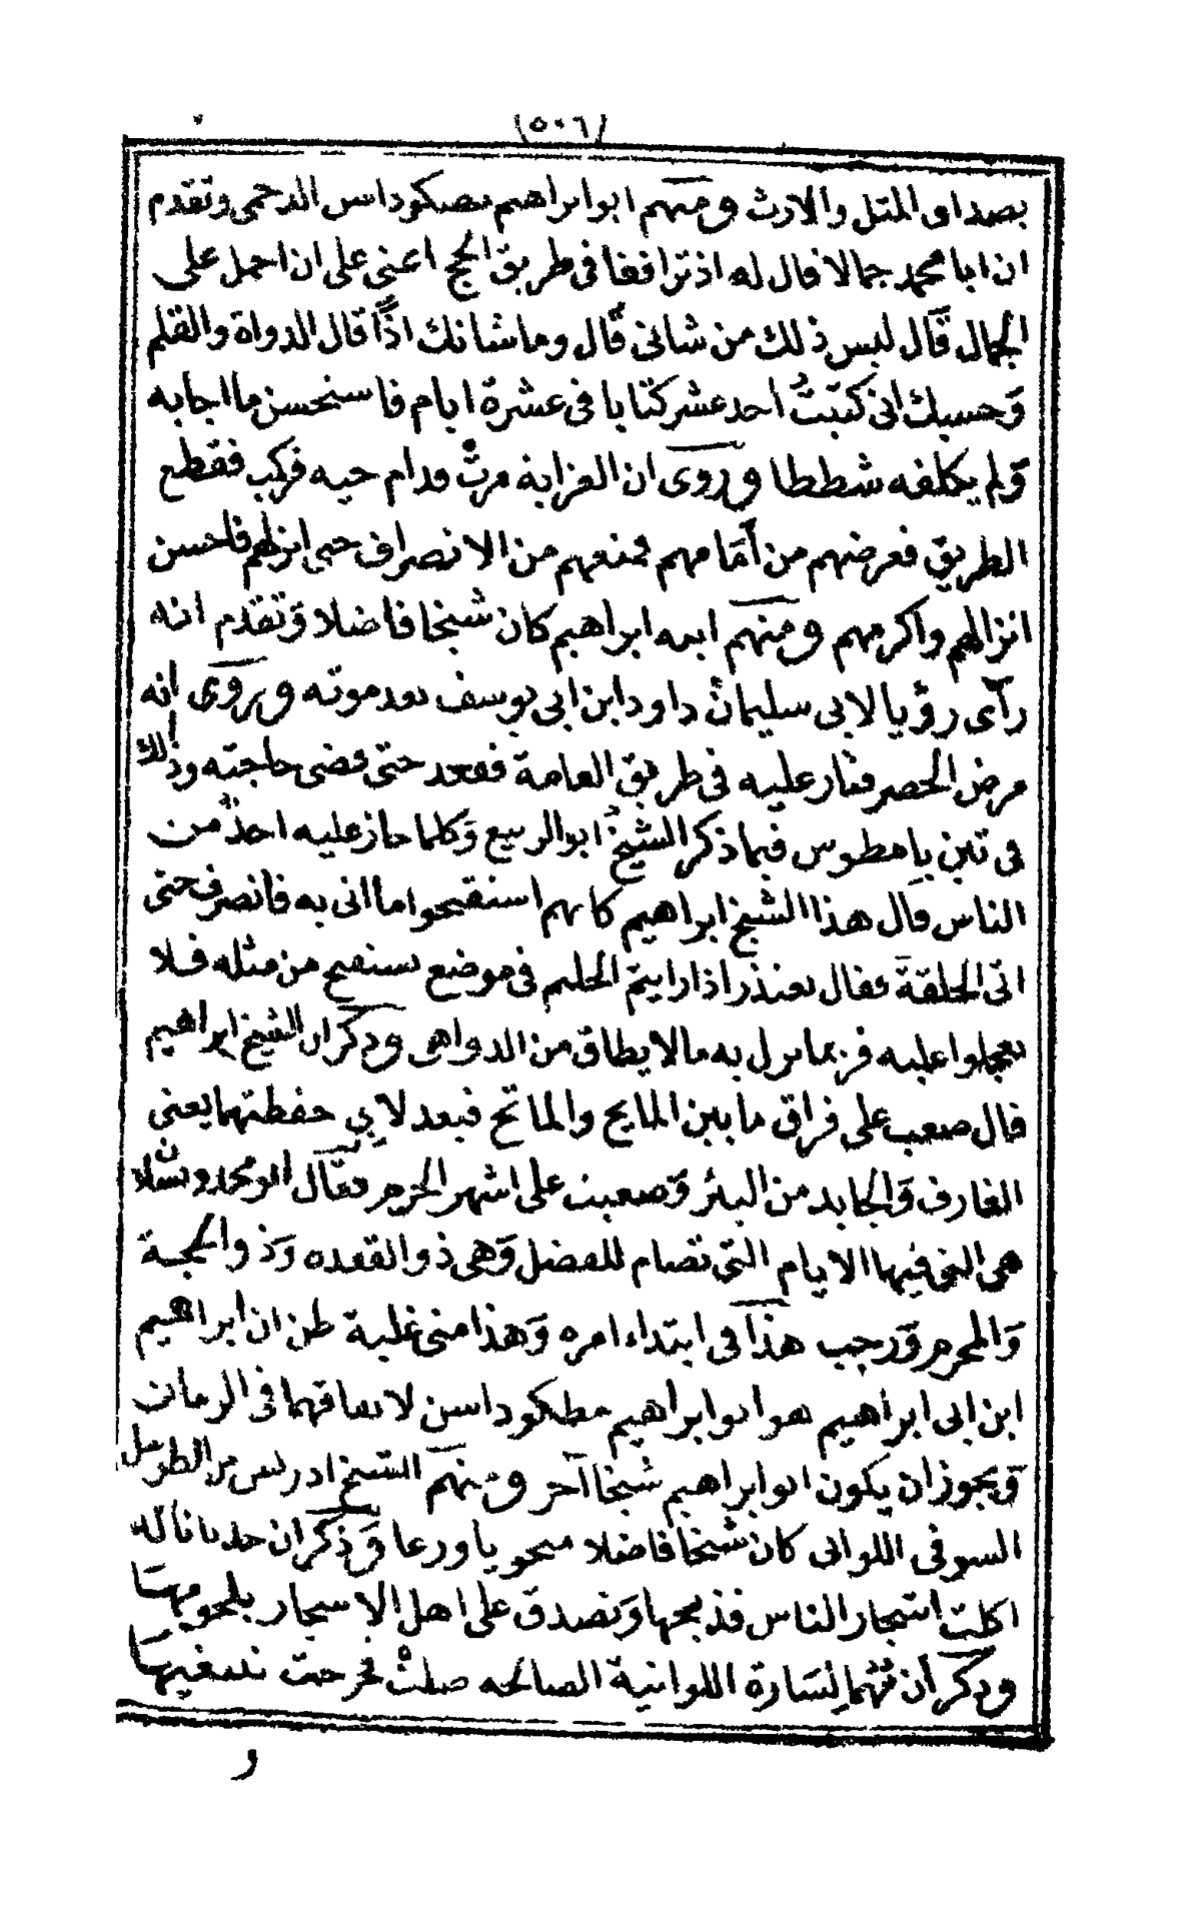 (٥٠٦)
بصداى المثل والارث ومنهم ابو ابراهيم مصكوداسن الدجمى وتقدم
ان ابا محمد جمالا قال له اذ ترافقا فى طريق الحج اعنى على ان احمل على
الجمال قال ليس ذلك من شانى قال وما شانك اذًا قال الدواة والقلم
وحسبك انى كتبتُ احد عشر كتابا فى عشرة ايام فاستحسن ما اجابه
ولم يكلفه شططا وروى ان العزابة مرتْ قدام حيه فركب فقطع
الطريق فعرضهم من أمامهم فمنعهم من الانصراف حتى انزلهم فاحسن
انزالهم واكرمهم ومنهم ابنه ابراهيم كان شيخا فاضلا وتقدم انه
رآى رؤيا لابى سليمان داود ابن ابى يوسف بعد موته ويروى انه
مرض الحصر فثار عليه فى طريق العامة فقعد حتى قضى حاجته وذلك
فى تين يامطوس فيما ذكر الشيخ ابو الربيع وكلما جاز عليه احدٌ من
الناس قال هذا الشيخ ابراهيم كانهم استقبحوا ما اتى به فانصرف حتى
اتى الحلقة فقال يعتذر اذا رايتم الحليم فى موضع يستقبح من مثله فلا
تعجلوا عليه فربما نزل به ما لا يطاق من الدواهى وذكر ان الشيخ ابراهيم
قال صعب على فراق ما بين المايح والماتح فبعد لاي حفظتهما يعنى
الغارف والجابد من البئر وصعبت على اشهر الحرم فقال ابو محمد ويسلان
هى التى فيها الايام التى تصام للفضل وهى ذو القعده وذو الحجة
والمحرم ورجب هذا فى ابتداء امره وهذا منى غلبة ظن ان ابراهيم
ابن ابى ابراهيم هو ابو ابراهيم مطكوداسن لاتفاقهما فى الزمان
ويجوز ان يكون ابو ابراهيم شيخا آخر ومنهم الشيخ ادريس من الطرميل
السوفى اللواتى كان شيخا فاضلا ورعا وذكر ان حدبانا له
اكلت اشجار الناس فذبحها وتصدق على اهل الاشجار بلحومها
وذكر ان تهما لسارة اللواتية الصالحه صلتْ فخرجت تبتغيها